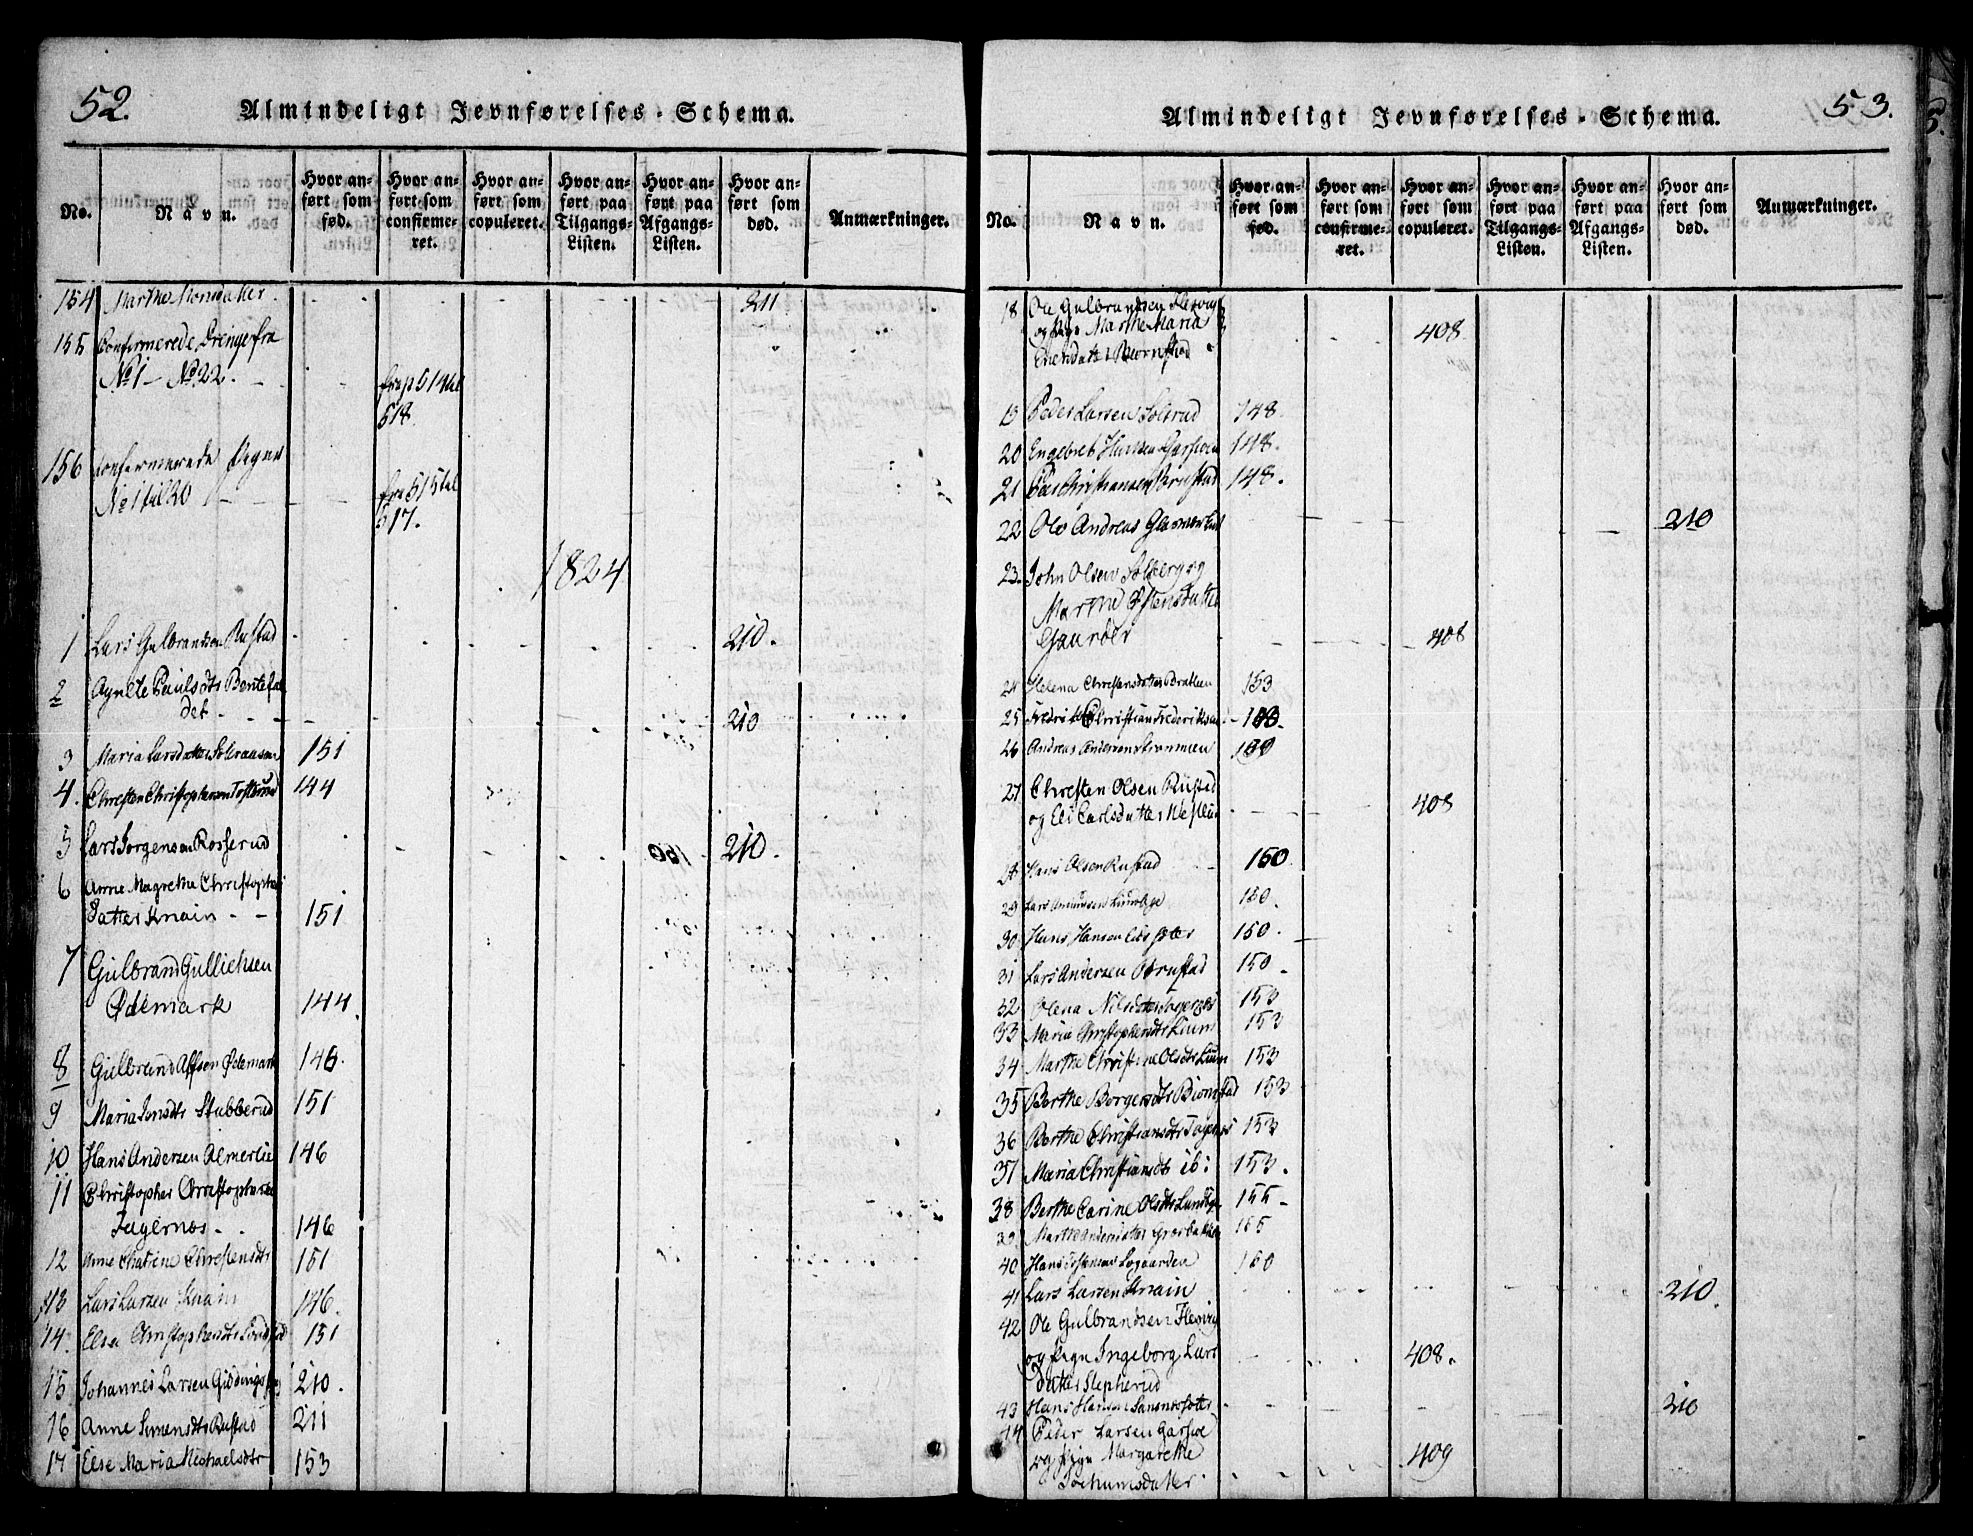 52.
Almindeligt Jevnførelses-Schema.
No.
Navn.
Hvor anført som fød.
Hvor anført som confirmeret.
Hvor anført som copuleret.
Hvor anført paa Tilgangs-Listen.
Hvor anført paa Afgangs-Listen.
Hvor anført som død.
Anmærkninger.
154 Marthe Monsdatter 211
155 Confirmerede Drenge fra
No 1 - No 22. fra p 514 til
518.
156 Confirmerede Piger
No 1 til 20 fra 515 til
517.
1824
1 Lars Gulbrandsen Rustad 210.
2 Agnete Paulsdtr
det 210
3 Maria Larsdatter 151
4. Christen Christophersen 144
5 Lars Jorgensen Rosserud 210.
6 Anne Magrethe Christophers
Datter Knain 151
7 Gulbrand Gullichsen
Ødemark 144
8 Gulbrand Ødemark 146.
9 Maria Jonsdtr Stubberud 151
10 Hans Andersen Almerlie 146
11 Christopher Christophersen
Jagernæs 146
12 Anne Chatrine Christensdtr 151
13 Lars Larsen Knain 146.
14. Else Christophersdtr 151
15 Johannes Larsen 210.
16 Anne Simensdtr Rustad 211
17 Else Maria Michaelsdtr 153
53.
Almindeligt Jevnførelses-Schema.
No.
Navn.
Hvor anført som fød.
Hvor anført som confirmeret.
Hvor anført som copuleret.
Hvor anført paa Tilgangs-Listen.
Hvor anført paa Afgangs-Listen.
Hvor anført som død.
Anmærkninger.
18 Ole Gulbrandsen Flesvig
og Pige Marthe Maria 408
19 Peder Larsen Solerud 148.
20 Engebret Hansen 148.
21 Christiansen 148.
22 Ole Andreas 210
23. John Olsen Solberg og
Marthe Østensdatter
408
24 Helena Christensdatter Braten 153
25 Christian Frederiksen
26 Andreas Andersen Strømmen
27 Christen Olsen Rustad
og Eli Carlsdatter 408
28 Hans Olsen Rustad 150
29 Lars 150.
30 Hans Hansen 150.
31 Lars Andersen 150
32 Olena Nilsdatter 153
33 Maria Christophersdtr Lium 153
34 Marthe Christine Olsdtr Lium 153
35 Berthe Borgersdtr 153
36 Berthe Christiansdtr 153
37 Maria Christiansdtr ib: 153.
38 Berthe Carine Olsdtr 155
39 Marthe Andersdatter 155
40 Hans 150
41 Lars Larsen Knain 210.
42 Ole Gulbrandsen Flesvig
og Pige Ingeborg Lars 408.
datter
43 Hans Hansen 210
44 Peder Larsen
og Pige Margarethe 409
Jochumsdatter.